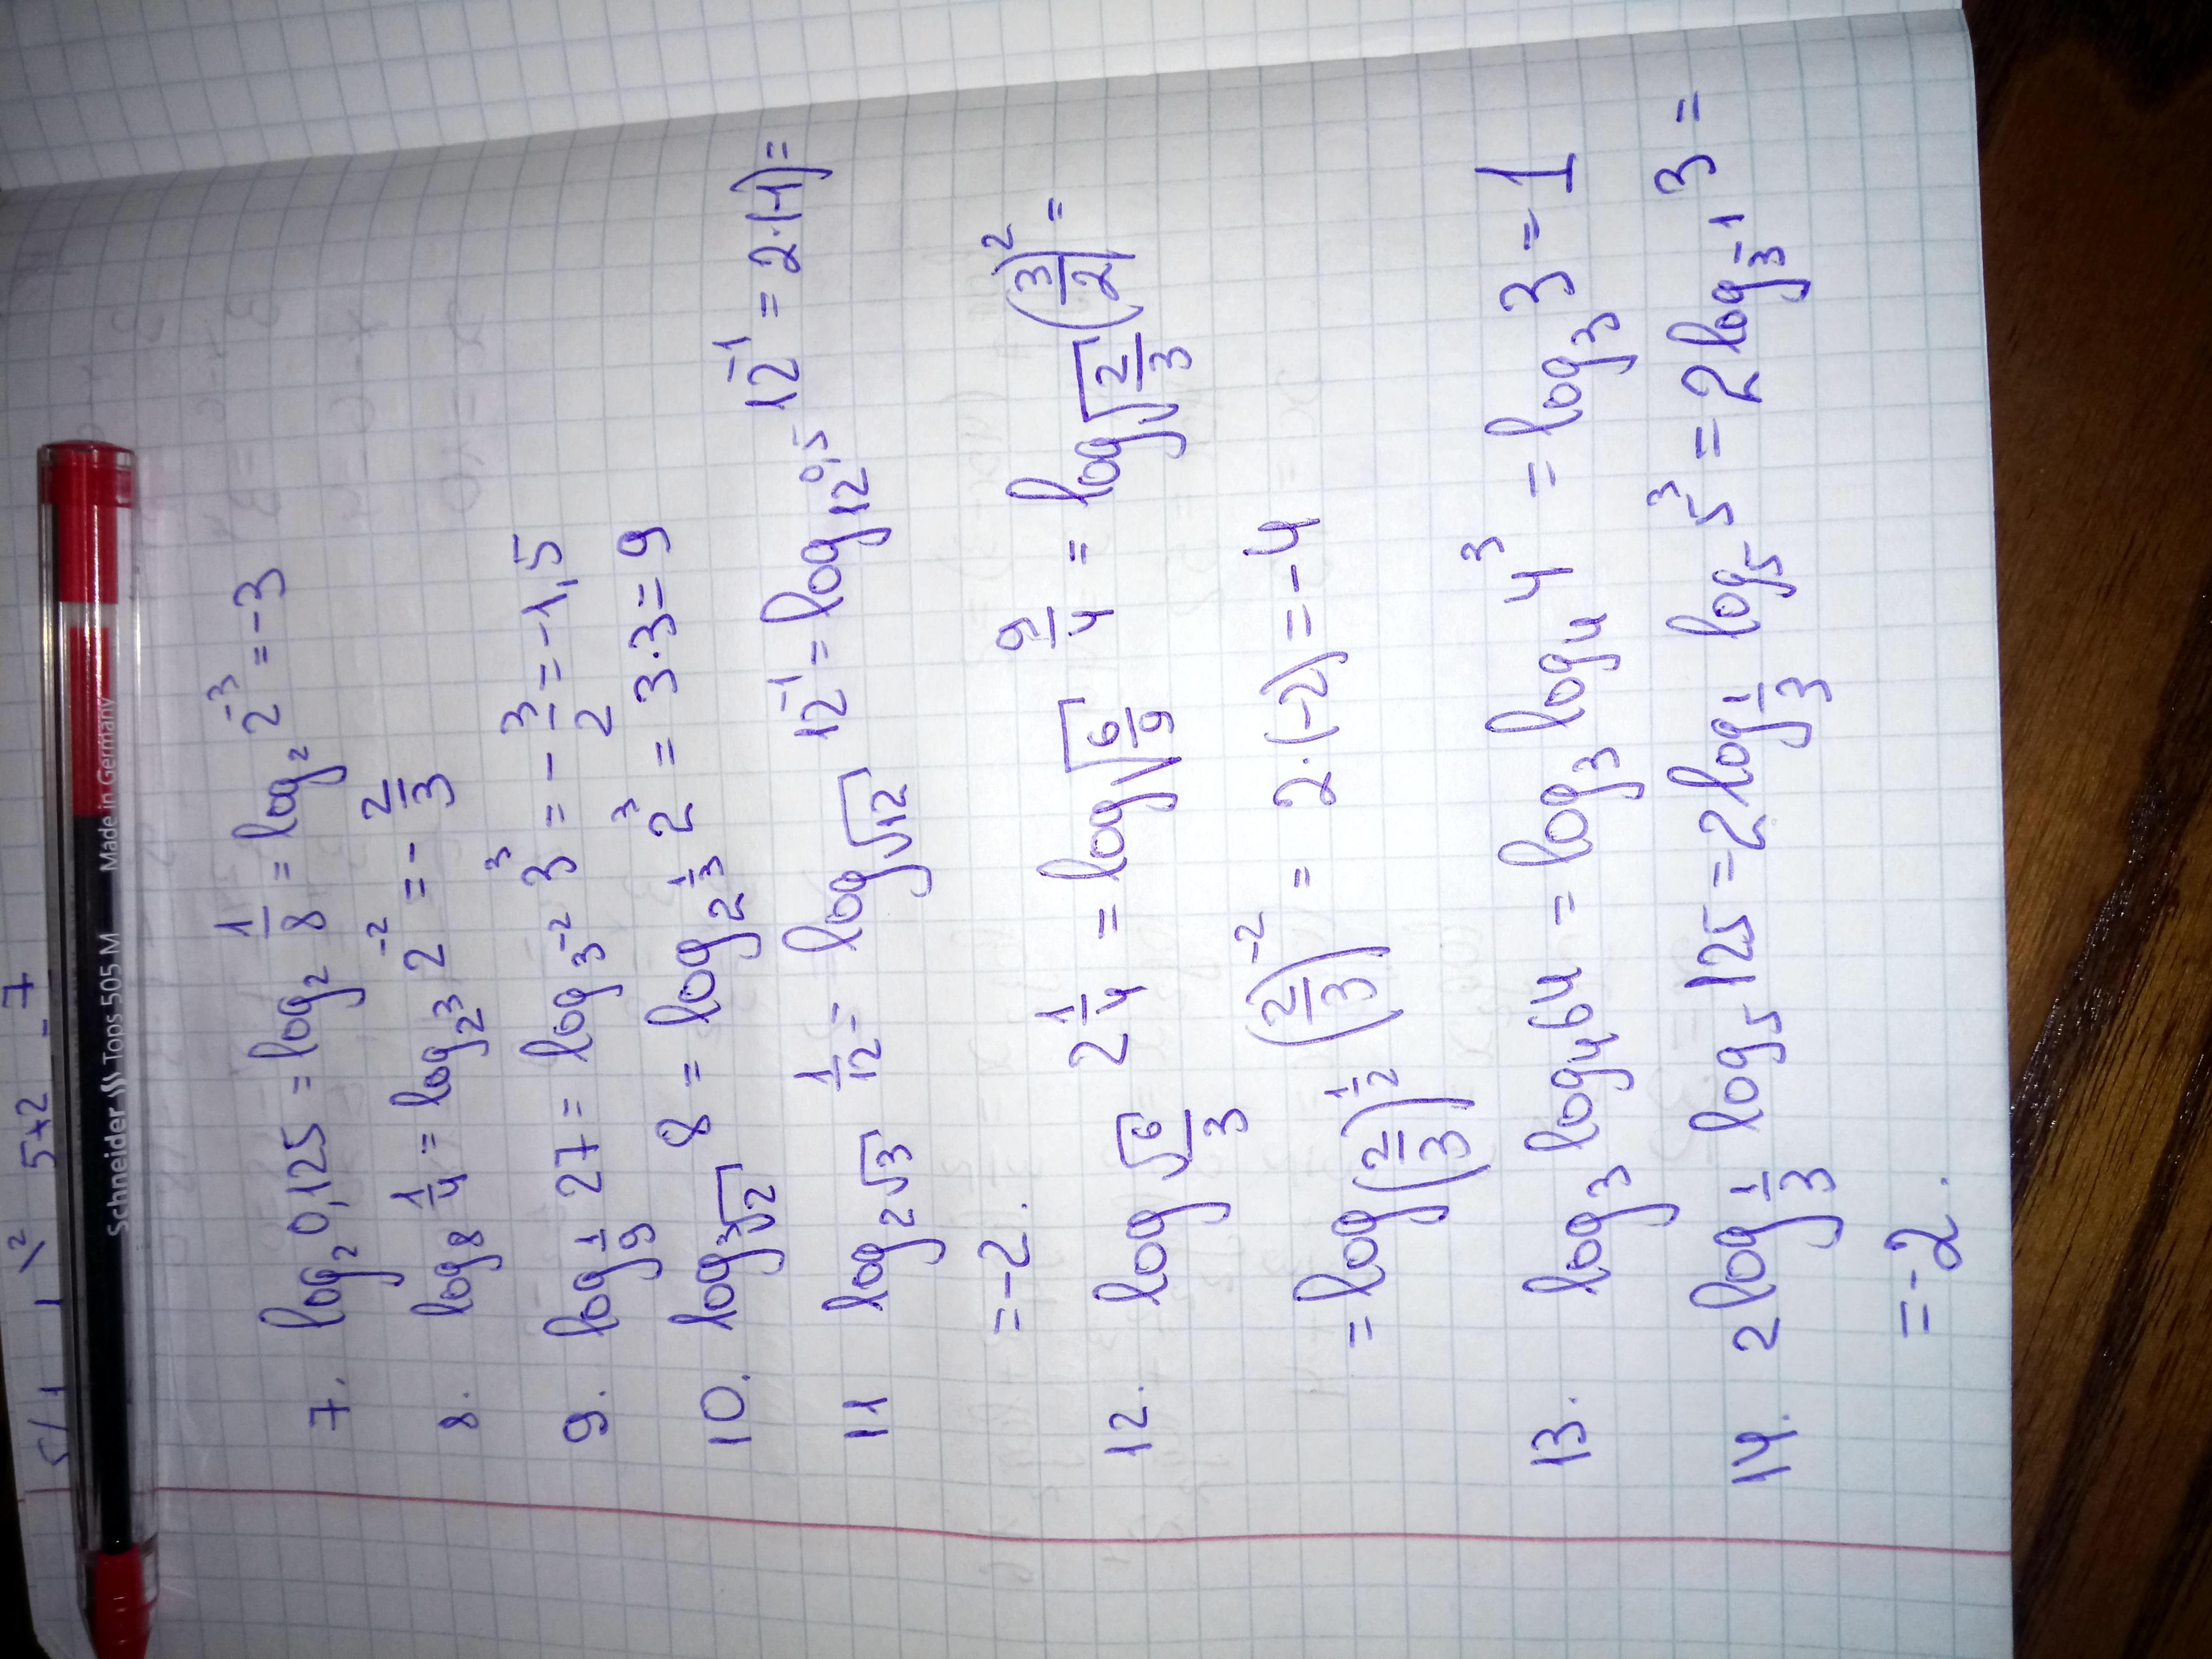 5+2 = 7
Schneider Tops 505 M Made in Germany
7. log₂ 0,125 = log₂ 1/8 = log₂ 2⁻³ = -3
8. log₈ 1/4 = log_{2³} 2⁻² = -2/3
9. log_{1/9} 27 = log_{3⁻²} 3³ = -3/2 = -1,5
10. log_{³√2} 8 = log_{2^{1/3}} 2³ = 3·3 = 9
11 log_{2√3} 1/12 = log_{√12} 12⁻¹ = log_{12^{0,5}} 12⁻¹ = 2·(-1) =
= -2.
12. log_{√6/3} 2 1/4 = log_{√(6/9)} 9/4 = log_{√(2/3)} (3/2)² =
= log_{(2/3)^{1/2}} (2/3)⁻² = 2·(-2) = -4
13. log₃ log₄ 64 = log₃ log₄ 4³ = log₃ 3 = 1
14. 2 log_{1/3} log₅ 125 = 2 log_{1/3} log₅ 5³ = 2 log_{3⁻¹} 3 =
= -2.